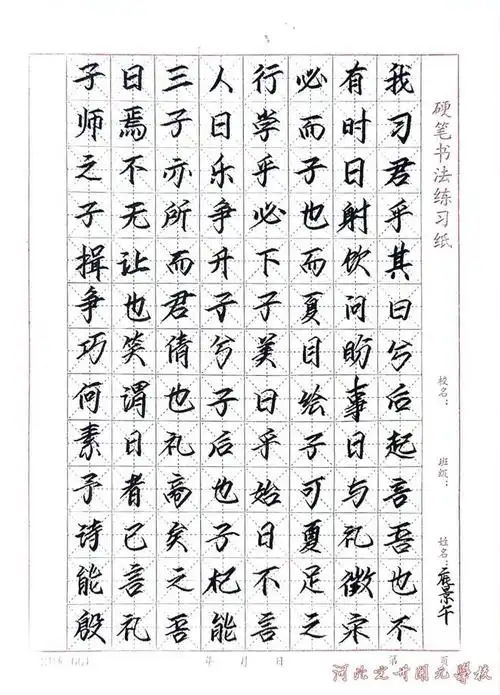 硬笔书法练习纸
子曰三人行必有我
师焉子曰学而时习
之不亦乐乎子曰君
子无所争必也射乎
揖让而升下而饮其
争也君子子夏问曰
巧笑倩兮美目盼兮
何谓也子曰绘事后
素曰礼后乎子曰起
予者商也始可与言
诗已矣子曰夏礼吾
能言之杞不足徵也
殷礼吾能言之宋不
校名：
班级：
姓名：景午
年 月 日
第 页
河北定州開元學校